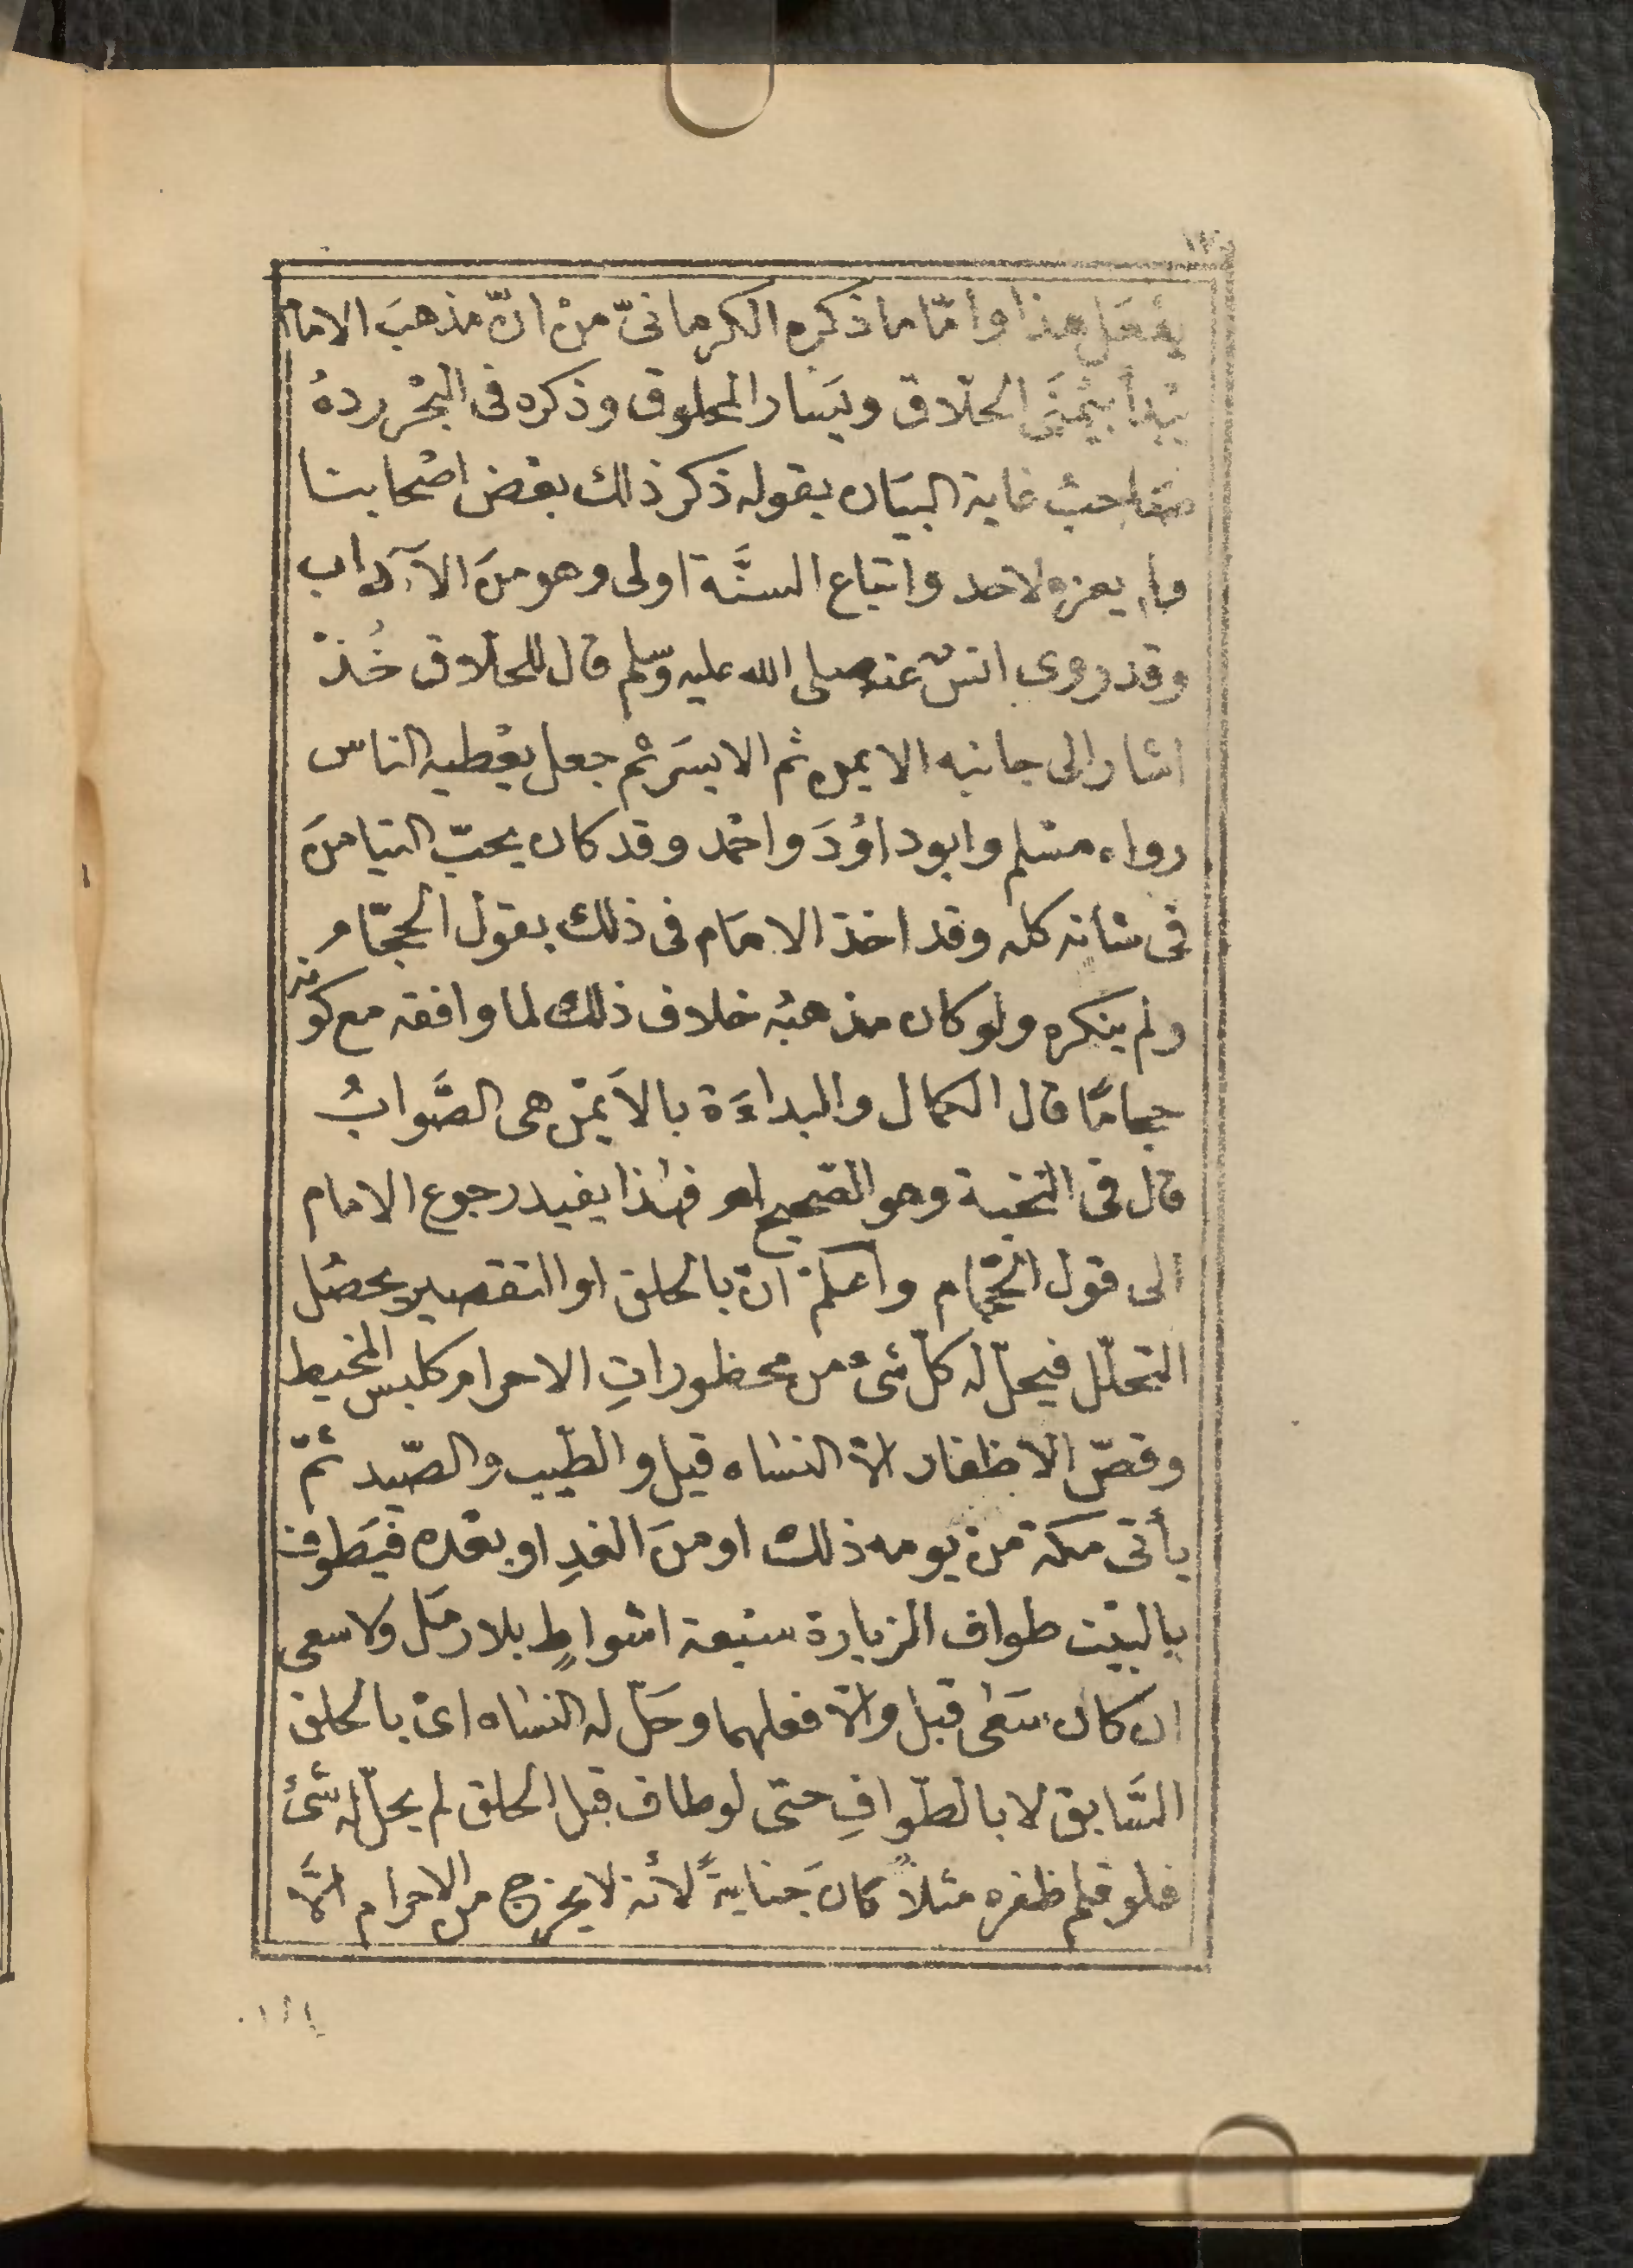 يفعل هذا وامّا ما ذكره الكرمانىّ منْ انّ مذهبَ الامام
يبْدأ بيُمنَى الحلّاق ويَسار المحلوق وذكره فى البحْر ردهُ
صَاحبُ غاية البيَان بقوله ذكر ذلك بعْض اصْحابنا
ولم يعزه لاحد واتباع السنَّة اولى وهو منَ الآداب
وقد روى انسٌ عنه صلى الله عليه وسلم قال للحلاق خُذْ
اشار الى جانبه الايمن ثم الايسَر ثم جعل يعْطيه الناس
رواه مسْلم وابو داوُدَ واحْمد وقد كان يحبّ التيامنَ
فى شانه كله وقد اخذ الامَام فى ذلك بقول الحجّام
ولم ينكره ولو كان مذهبُه خلاف ذلك لما وافقه مع كونه
حجامًا قال الكمال والبداءَة بالاَيمْن هى الصَّوابُ
قال فى النخبة وهو الصّحيح اهـ فهٰذا يفيد رجوع الامام
الى قول الحجّام واعلمْ انّ بالحلق او التقصير يحصُل
التحلّل فيحلّ له كلّ شىء من محظوراتِ الاحرام كلبس المخيط
وقصّ الاظفار الا النسٰاء قيل والطّيب والصّيد ثمّ
يأتى مكة منْ يومه ذلك او منَ الغدِ او بعْده فيَطوف
بالبيْت طواف الزيارة سبْعة اشواطٍ بلا رمَل ولا سعى
ان كان سَعٰى قبل والّا فعلهما وحَلّ له النسٰاء اىْ بالحلق
السَّابق لا بالطّوافِ حتّى لو طاف قبل الحلق لم يحلّ له شىْئ
فلو قلم ظفره مثلاً كانَ جنايةً لأنه لا يخرج من الاحرام الَّا